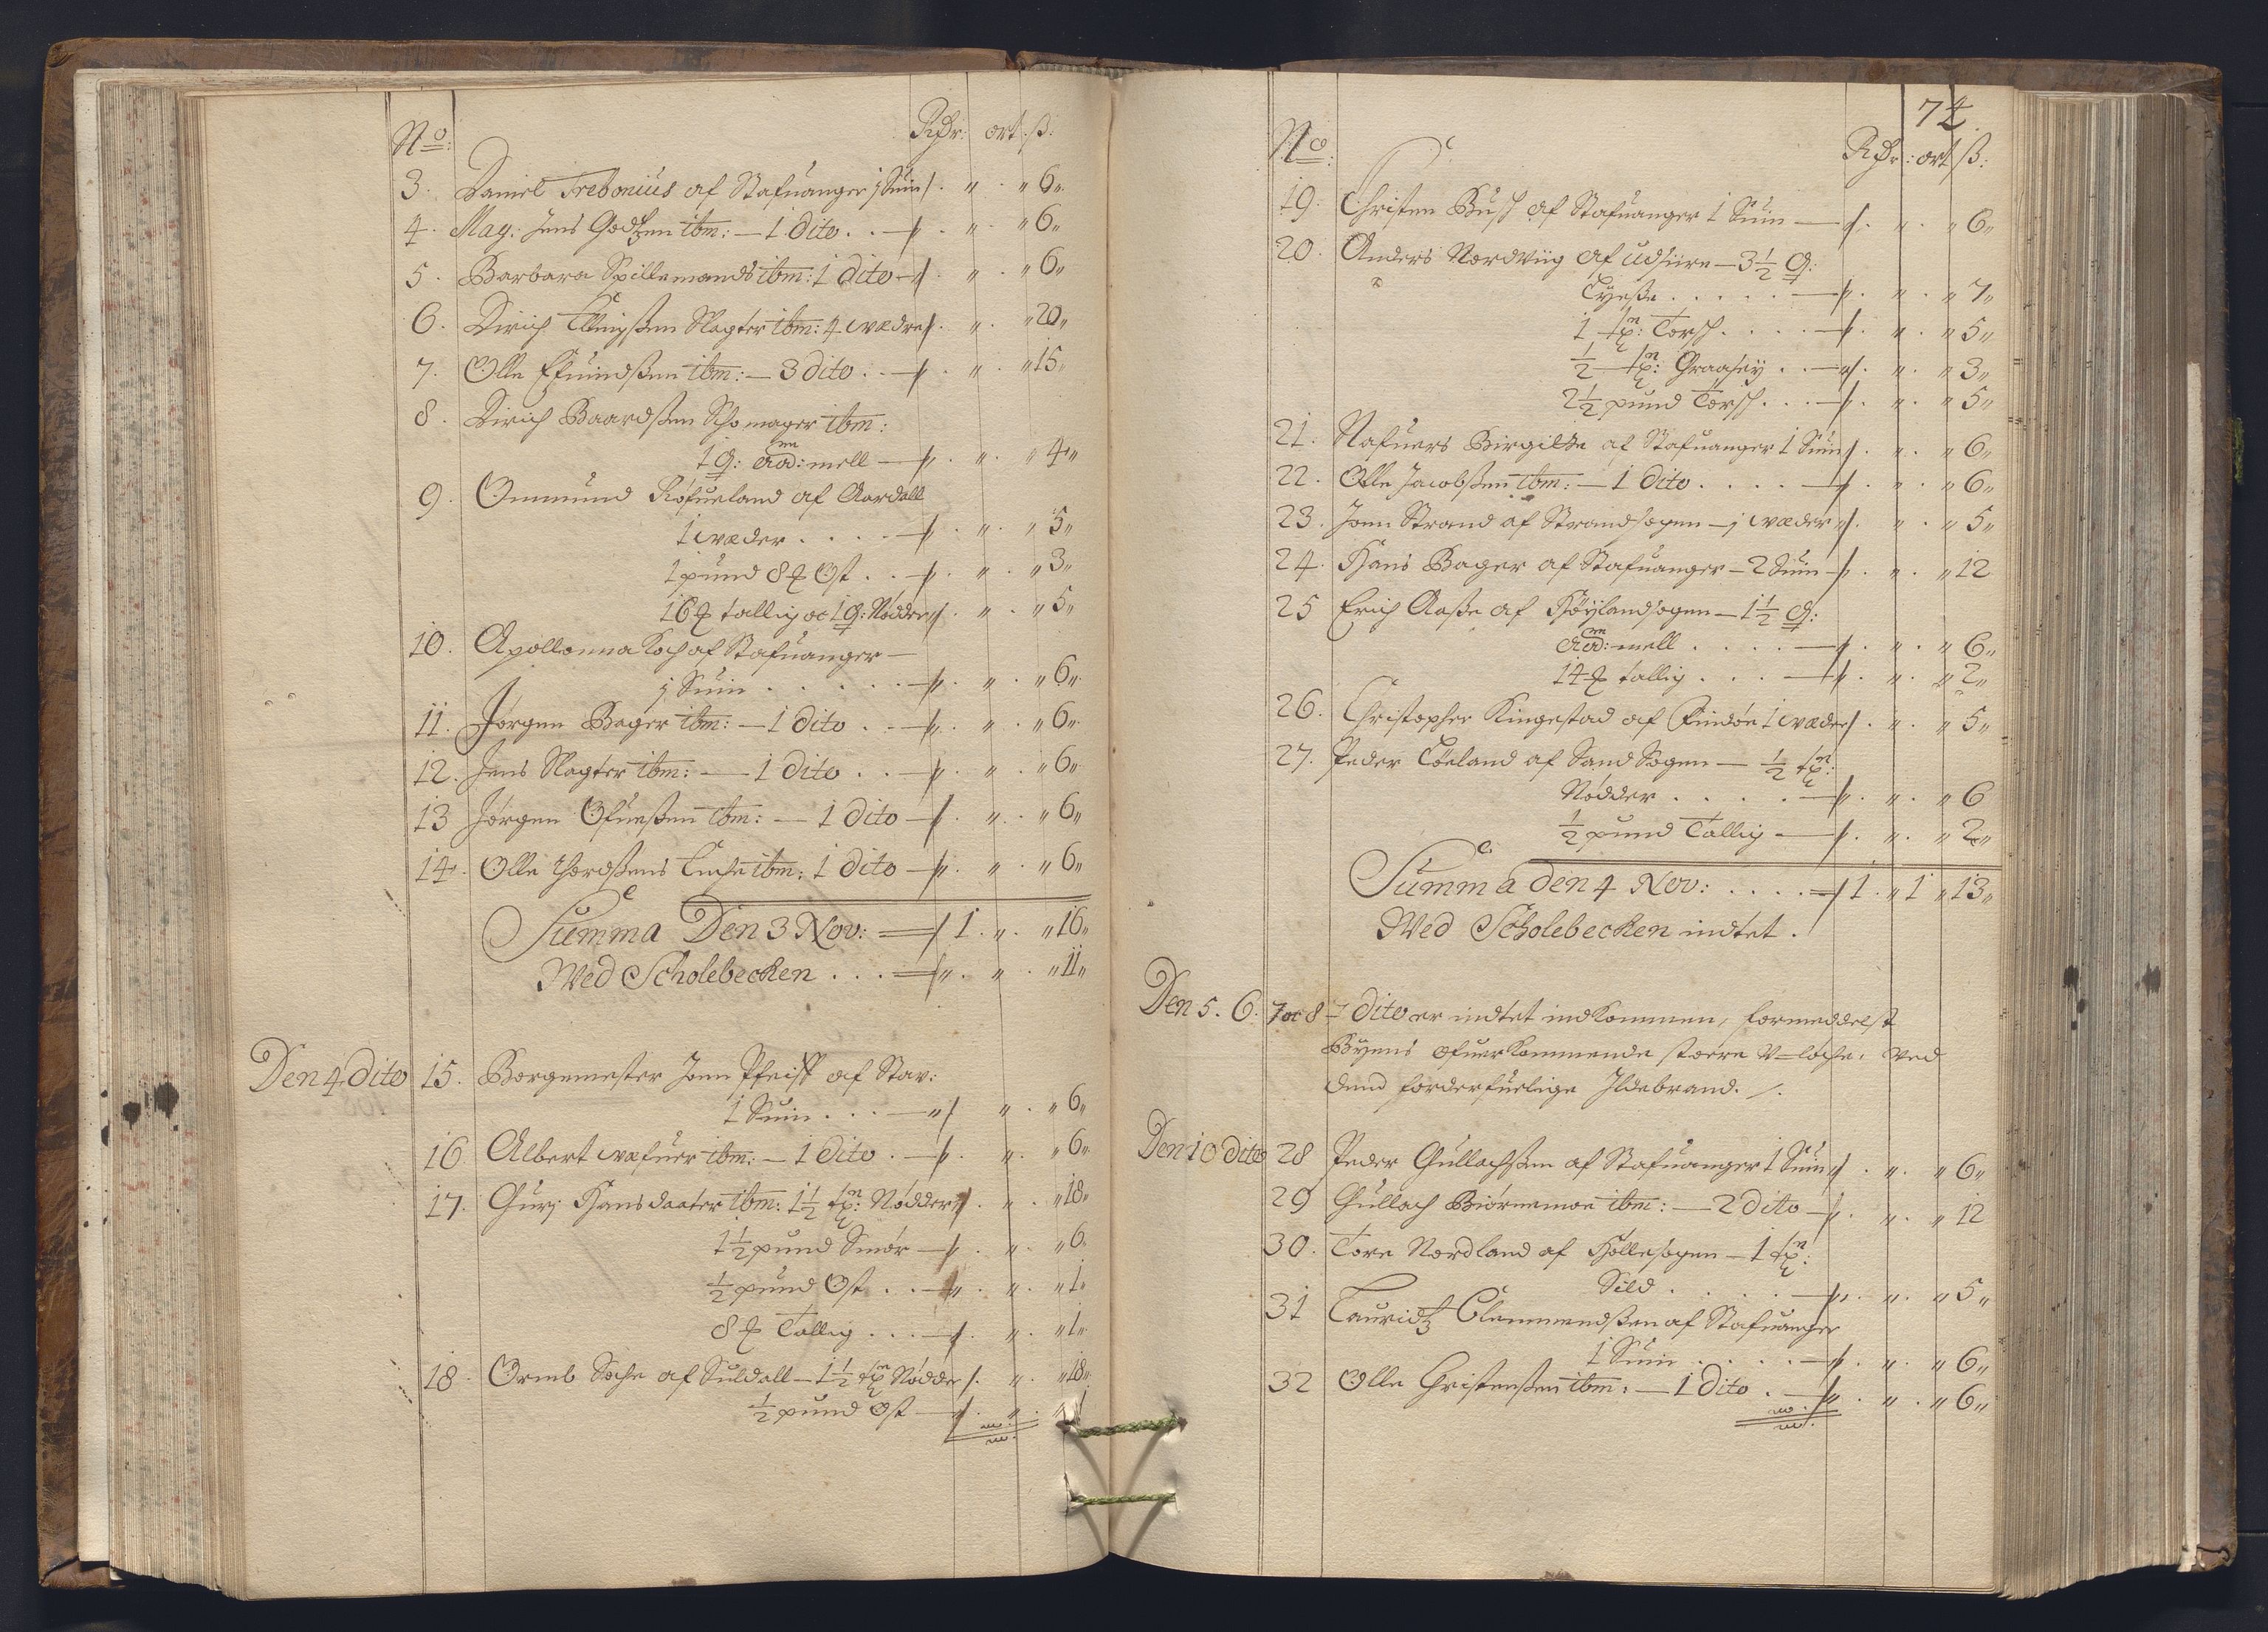 No: Rdr: ort ß:
3. Daniel Trebonius af Stafuanger j Suin „ „ 6„
4. Mag: Jens Godtzen ibm: – 1 dito . . „ „ 6„
5. Barbara Spillemands ibm: 1 dito „ „ 6„
6. Dirich Slagter ibm: 4 wædre „ „ 20„
7. Olle Efuindßen ibm: – 3 dito . . „ „ 15„
8. Dirich Baardßen Schomager ibm:
1 Q: mell „ „ 4„
9. Ommund Røfueland af Aardall
1 wæder . . . . „ „ 5„
1 pund 8 ℔ Ost . . „ „ 3„
16 ℔ tallig oc 1 Q: Nødder „ „ 5„
10. Apollonna Koch af Stafuanger –
j Suin . . . . . „ „ 6„
11. Jørgen Bager ibm: – 1 dito . . „ „ 6„
12. Jens Slagter ibm: – 1 dito . . „ „ 6„
13 Jørgen Ofueßen ibm: – 1 dito „ „ 6„
14. Olle Thordßens Enche ibm: 1 dito „ „ 6„
Summa Den 3 Nov: 1 . „ „ 16„
Wed Scholebecken . . . „ „ „ 11„
Den 4 dito 15. Borgemester Jonn Pfeiff af Stav:
1 Suin . . . „ „ 6„
16 Albert wæfuer ibm: – 1 dito . „ „ 6„
17. Gurj Hansdaater ibm: 1½ tn: Nødder „ „ 18„
1½ pund Smør „ „ 6
½ pund Ost . . „ „ 1„
8 ℔ Tallig . . . „ „ 1„
18. Ormb Soche af Suldall – 1½ tn Nødder „ „ 18„
½ pund Ost „ „ 1
74
No: Rdr: ort ß:
19. Christen Buss af Stafuanger 1 Suin „ „ 6„
20. Anders Nordviig af Udsiire – 3½ Q:
Tyeße . . . . . „ „ 7„
1 tn: Torsch . . . . „ „ 5„
½ tn: Graasey . . „ „ 3„
2½ pund Torsch . . . „ „ 5„
21. Nafuers Birgitte af Stafuanger 1 Suin „ „ 6„
22. Olle Jacobßen ibm: – 1 dito . . . . „ „ 6„
23. Jonn Strand af Strandsogen – j wæder „ „ 5„
24. Hans Bager af Stafuanger – 2 Suin „ „ 12
25 Erich Aaße af Høylandsogen – 1½ Q:
mell . . . . „ „ 6„
14 ℔ tallig . . . „ „ 2„
26. Christopher Kingestad af Findøe 1 wæder „ „ 5„
27. Peder Tøeland af Sand Sogen – ½ tn:
Nødder . . . . . „ „ 6
½ pund Tallig „ „ 2„
Summa den 4 Nov: . . . . 1 . „ 1 „ 13„
Wed Scholebecken indtet.
Den 5. 6. 7 oc 8 – dito er indtet indkommen, formeddelst
Byens ofuerkommende stoere V=løche, ved
dend forderfuelige Ildebrand. /.
Den 10 dito 28 Peder Gullachßen af Stafuanger 1 Suin „ „ 6„
29 Gullach Biørnemoe ibm: – 2 dito „ „ 12
30. Tore Nordland af Hollesogen – 1 tn:
Sild . . . . . „ „ 5„
31 Lauridtz Clemmendßen af Stafuanger
1 Suin . . . . „ „ 6„
32 Olle Christenßen ibm: – 1 dito . „ „ 6„